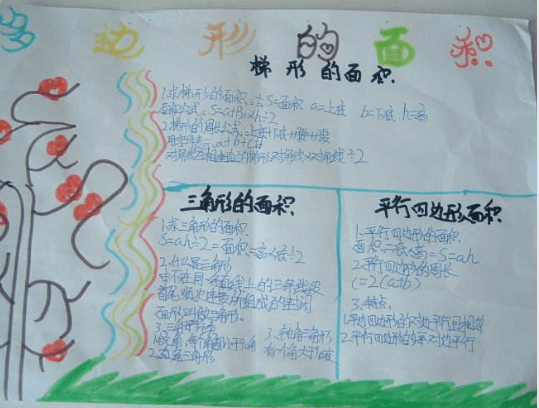 多边形的面积
梯形的面积
1.求梯形的面积 S=面积 a=上底 b=下底 h=高
面积公式: S=(a+b)×h÷2
2.梯形的周长公式: 上底+下底+腰+腰
对角线互相垂直的梯形 对角线×对角线÷2
三角形的面积
1.求三角形的面积
S=ah÷2=面积=高×底÷2
2.什么是三角形
由不在同一直线上的三条线段
首尾顺次连接所组成的封闭
图形叫做三角形。
3.三角形分类
1.锐角
2.直角三角形
3.钝角三角形
有一个角大于90度
平行四边形面积
1.平行四边形的面积
面积=底×高=S=ah
2.平行四边形的周长
C=2(a+b)
3.特点。
1.平行四边形的对边平行且相等
2.平行四边形的两组对边平行